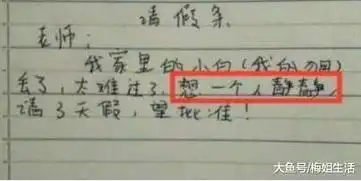 请假条
老师：
我家里的小白(我的狗)
丢了，太难过了，想一个人静静，
请3天假，望批准！
大鱼号/梅姐生活